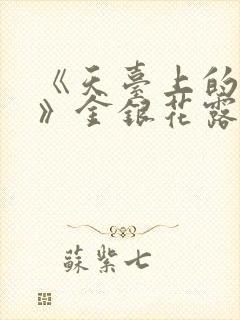 《天臺上的
》金銀花露
蘇紫七